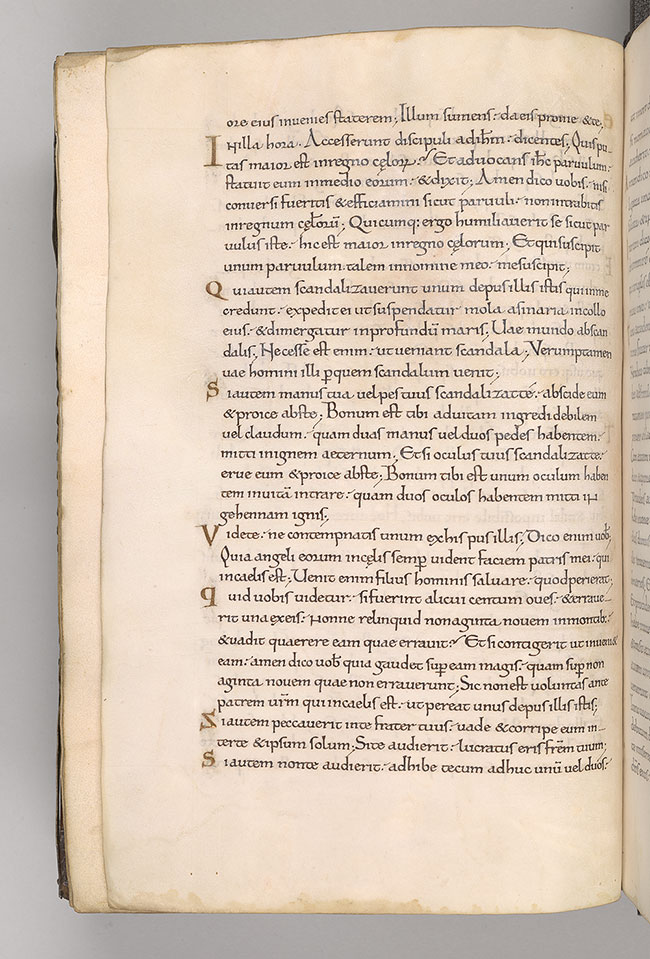 ore eius invenies staterem; Illum sumens: da eis prome & te.
INilla hora. Accesserunt discipuli ad ihm̄: dicentes; Quis pu-
tas maior est in regno cęlorū? Et advocans ihc̄ parvulum:
statuit eum in medio eorum: & dixit; Amen dico vobis: nisi
conversi fueritis & efficiamini sicut parvuli: non intrabitis
in regnum cęlorū; Quicumq: ergo humiliaverit se sicut par
vulus iste: hic est maior in regno cęlorum; Et qui suscipit
unum parvulum talem in nomine meo: me suscipit;
Qui autem scandalizaverunt unum de pusillis istis qui in me
credunt: expedit ei ut suspendatur mola asinaria in collo
eius: & dimergatur in profundū maris; Uae mundo ab scan
dalis; Necesse est enim: ut veniant scandala; Verumptamen
vae homini illi p quem scandalum venit;
Si autem manus tua vel pes tuus scandalizat te: abscide eum
& proice abs te; Bonum est tibi ad vitam ingredi debilem
vel claudum: quam duas manus vel duos pedes habentem:
mitti in ignem aeternum; Et si oculus tuus scandalizat te:
erue eum & proice abs te; Bonum tibi est unum oculum haben
tem in vitā intrare: quam duos oculos habentem mitti iN
gehennam ignis;
Videte: ne contempnatis unum ex his pusillis; Dico enim vob:
Quia angeli eorum in cęlis semp vident faciem patris mei: qui
in caelis est; Uenit enim filius hominis salvare: quod perierat;
quid vobis videtur: si fuerint alicui centum oves: & errave-
rit una ex eis: Nonne relinquid nonaginta novem in montib:
& vadit quaerere eam quae erravit? Et si contigerit ut inveni&
eam: amen dico vob quia gaudet sup eam magis: quam sup non
aginta novem quae non erraverunt; Sic non est voluntas ante
patrem vrm̄ qui in caelis est: ut pereat unus de pusillis istis;
Si autem peccaverit in te frater tuus: vade & corripe eum in-
ter te & ipsum solum; Si te audierit: lucratus eris frēm tuum;
Si autem non te audierit: adhibe tecum adhuc unū vel duos: